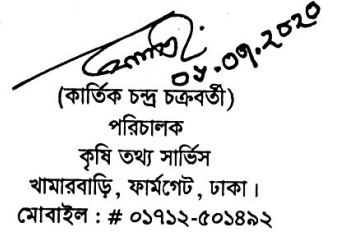 ০৮.০৭.২০২০
(কার্তিক চন্দ্র চক্রবর্তী)
পরিচালক
কৃষি তথ্য সার্ভিস
খামারবাড়ি, ফার্মগেট, ঢাকা।
মোবাইল : # ০১৭১২-৫০১৪৯২